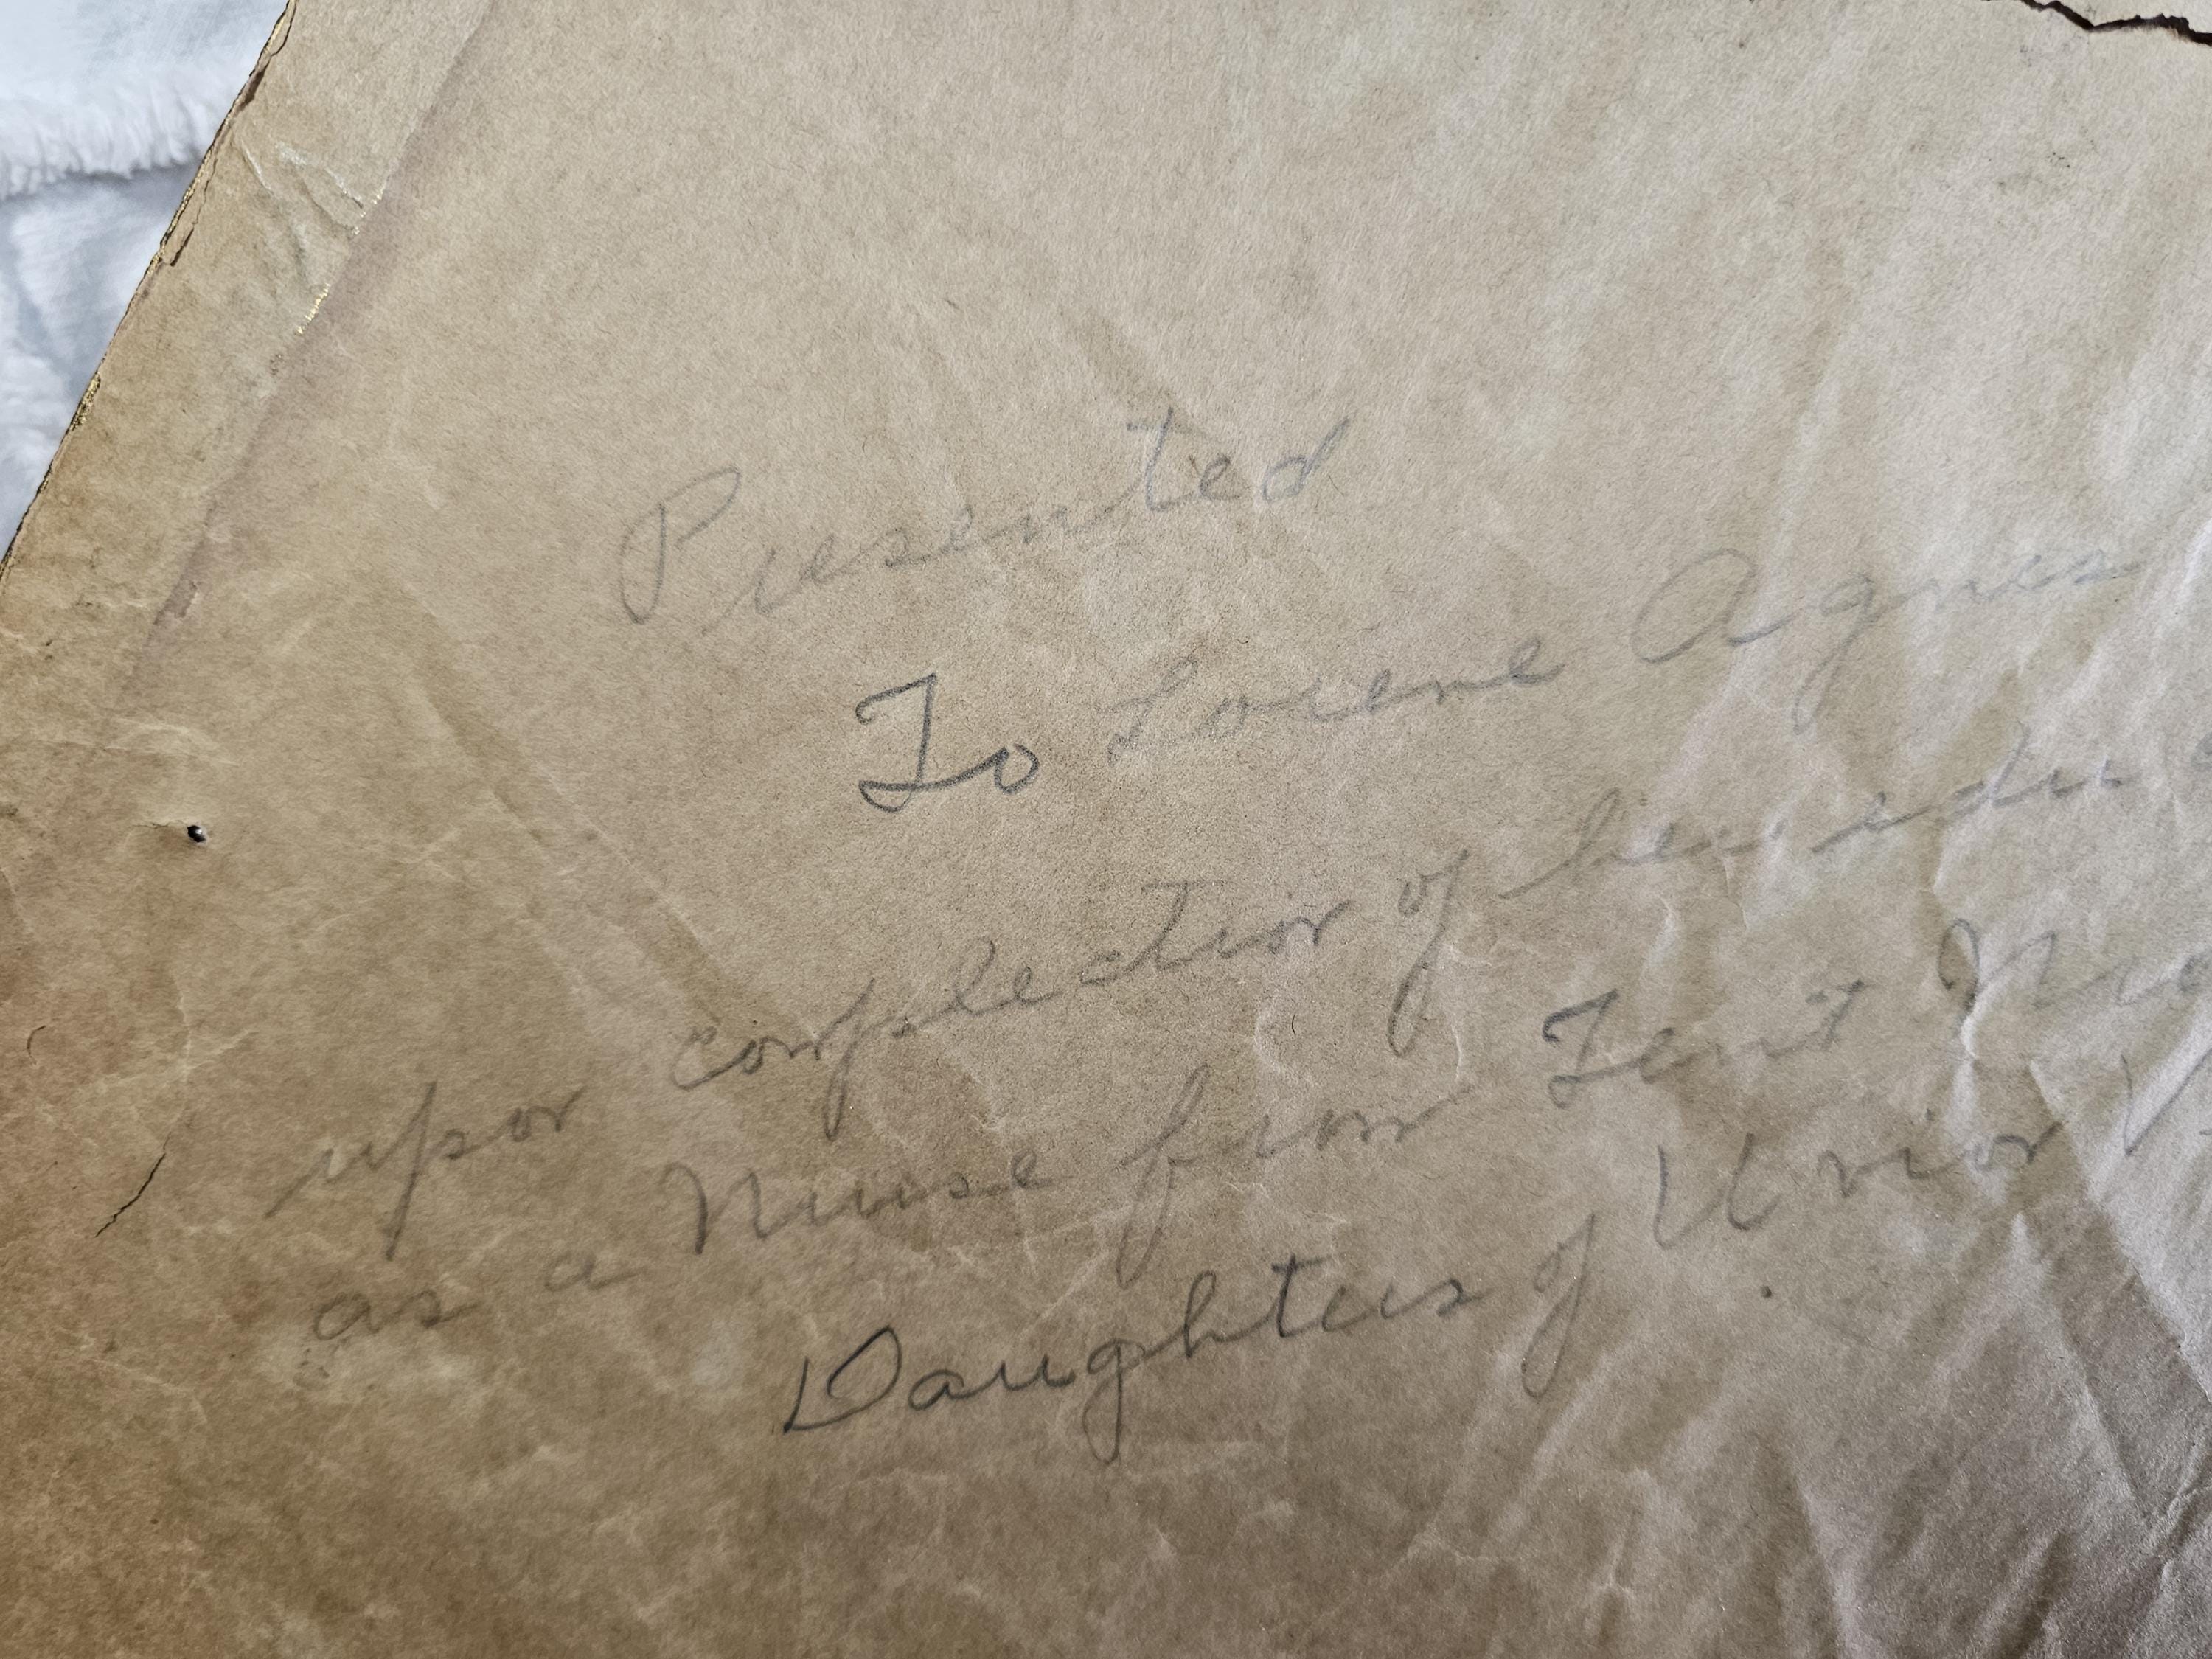 Presented
To Lorene Agnes
upon complection of her edu
as a Nurse from Tent No
Daughters of Union V